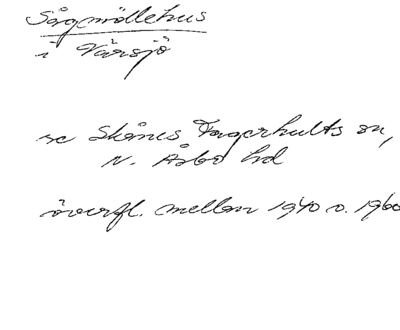 Sågmöllehus
i Värsjö
Skånes Fagerhults sn,
N. Åsbo hd
överfl. mellan 1940 o. 1960